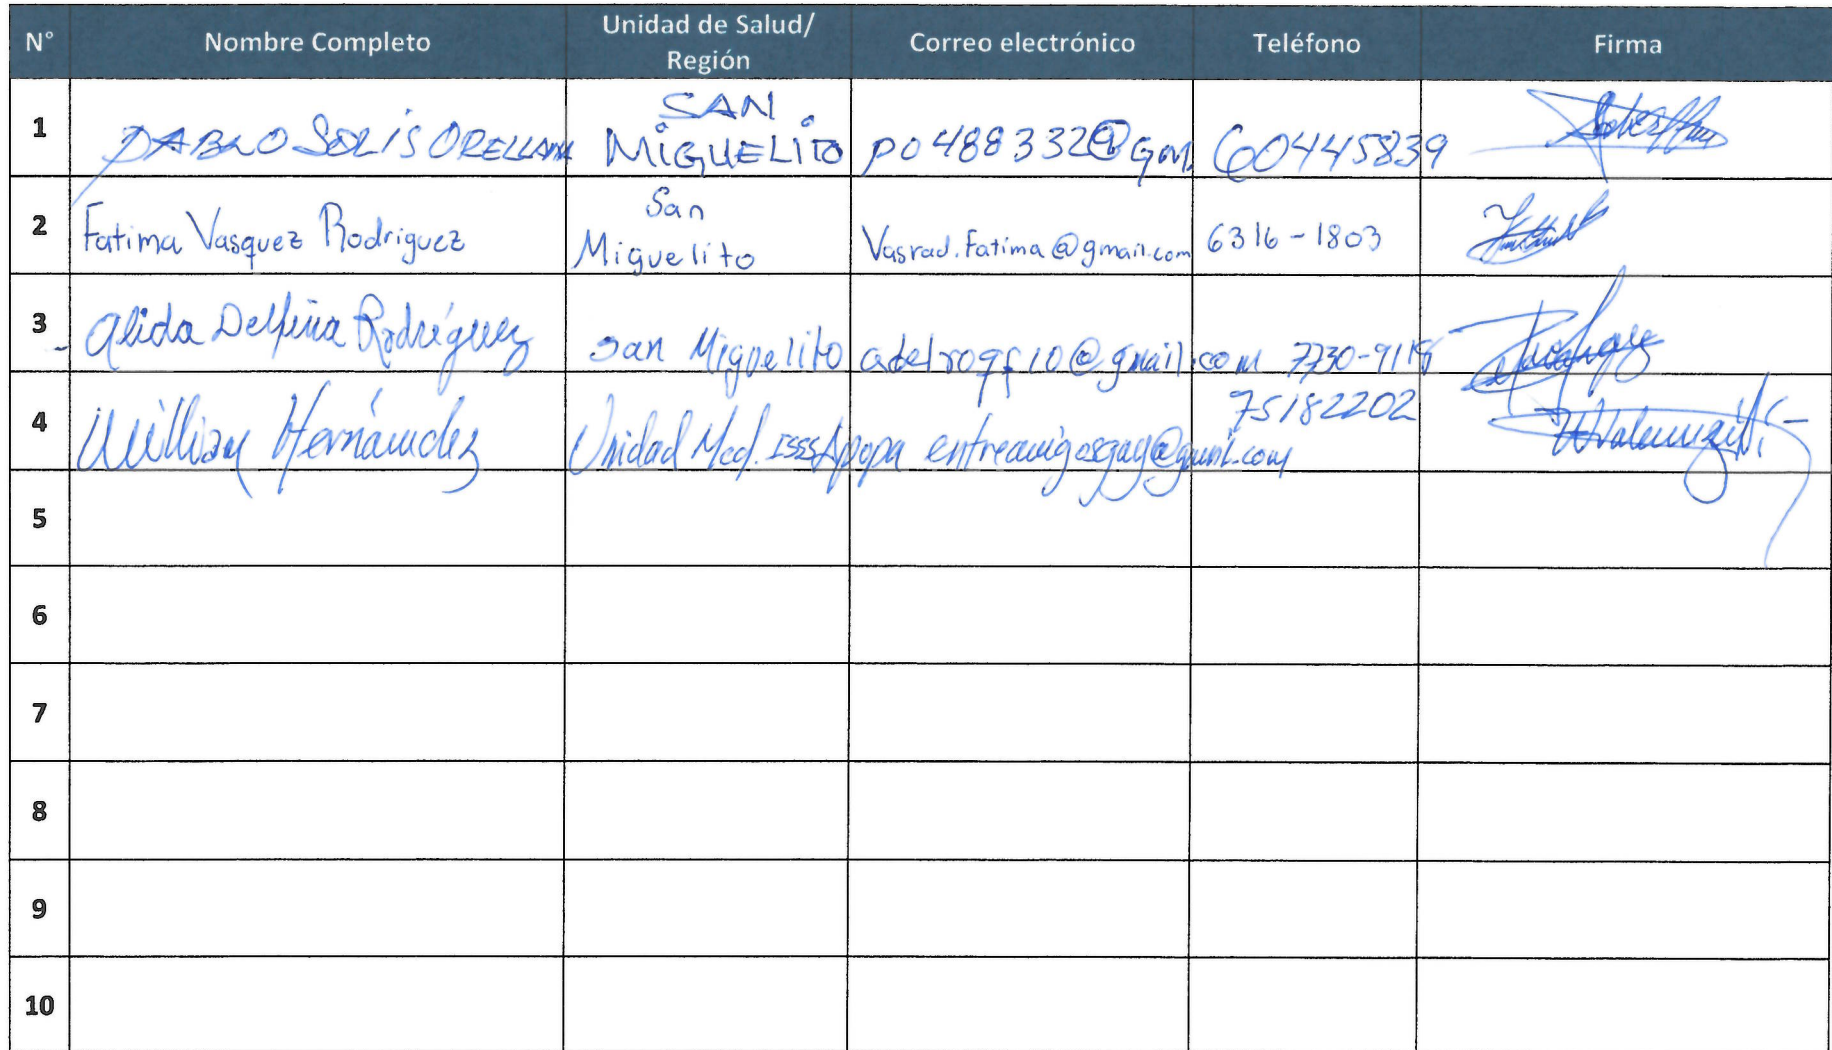 N° Nombre Completo Unidad de Salud/ Región Correo electrónico Teléfono Firma
1 PABLO SOLÍS ORELLANA SAN MIGUELITO po488332@gm 60445839
2 Fatima Vasquez Rodriguez San Miguelito Vasrod.Fatima@gmail.com 6316-1803
3 Alida Delfina Rodríguez San Miguelito 7730-9118
4 William Hernández Unidad Med. ISSS Apopa entreamigosgay@gmail.com 75182202
5
6
7
8
9
10